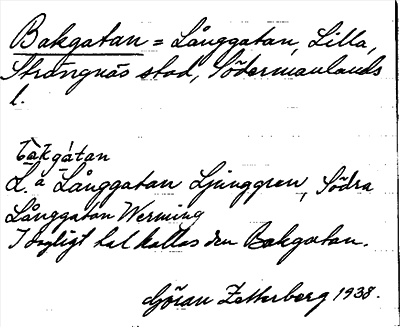 Bakgatan = Långgatan, Lilla,
Strängnäs stad, Södermanlands
l.
bàkgátan
L. a Långgatan Ljunggren, Södra
Långgatan Werming
I dagligt tal kallas den Bakgatan.
Göran Zetterberg 1938.